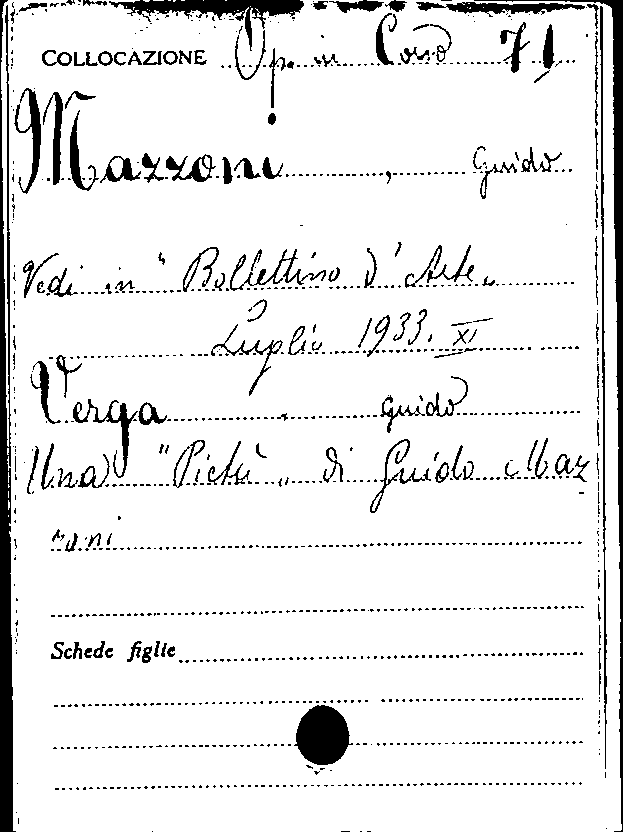 COLLOCAZIONE Op. in Corso 71
Mazzoni, Guido
Vedi in "Bollettino d'Arte„
Luglio 1933. XI
Verga, Guido
Una "Pietà„ di Guido Maz-
zoni
Schede figlie